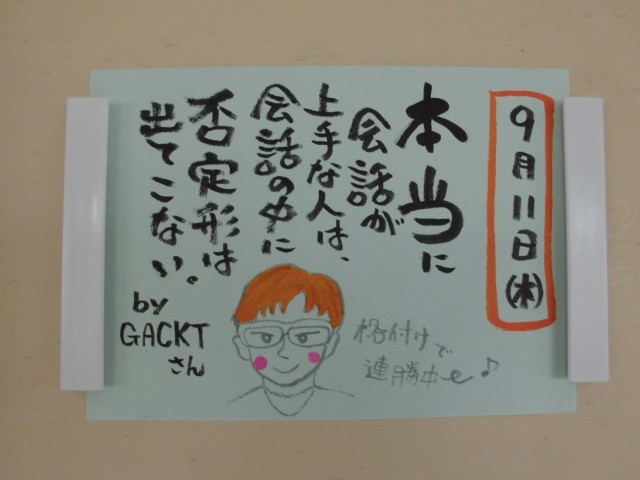 9月11日(木)
本当に
会話が
上手な人は、
会話の中に
否定形は
出てこない。
by
GACKT
さん
格付けで
連勝中〜♪